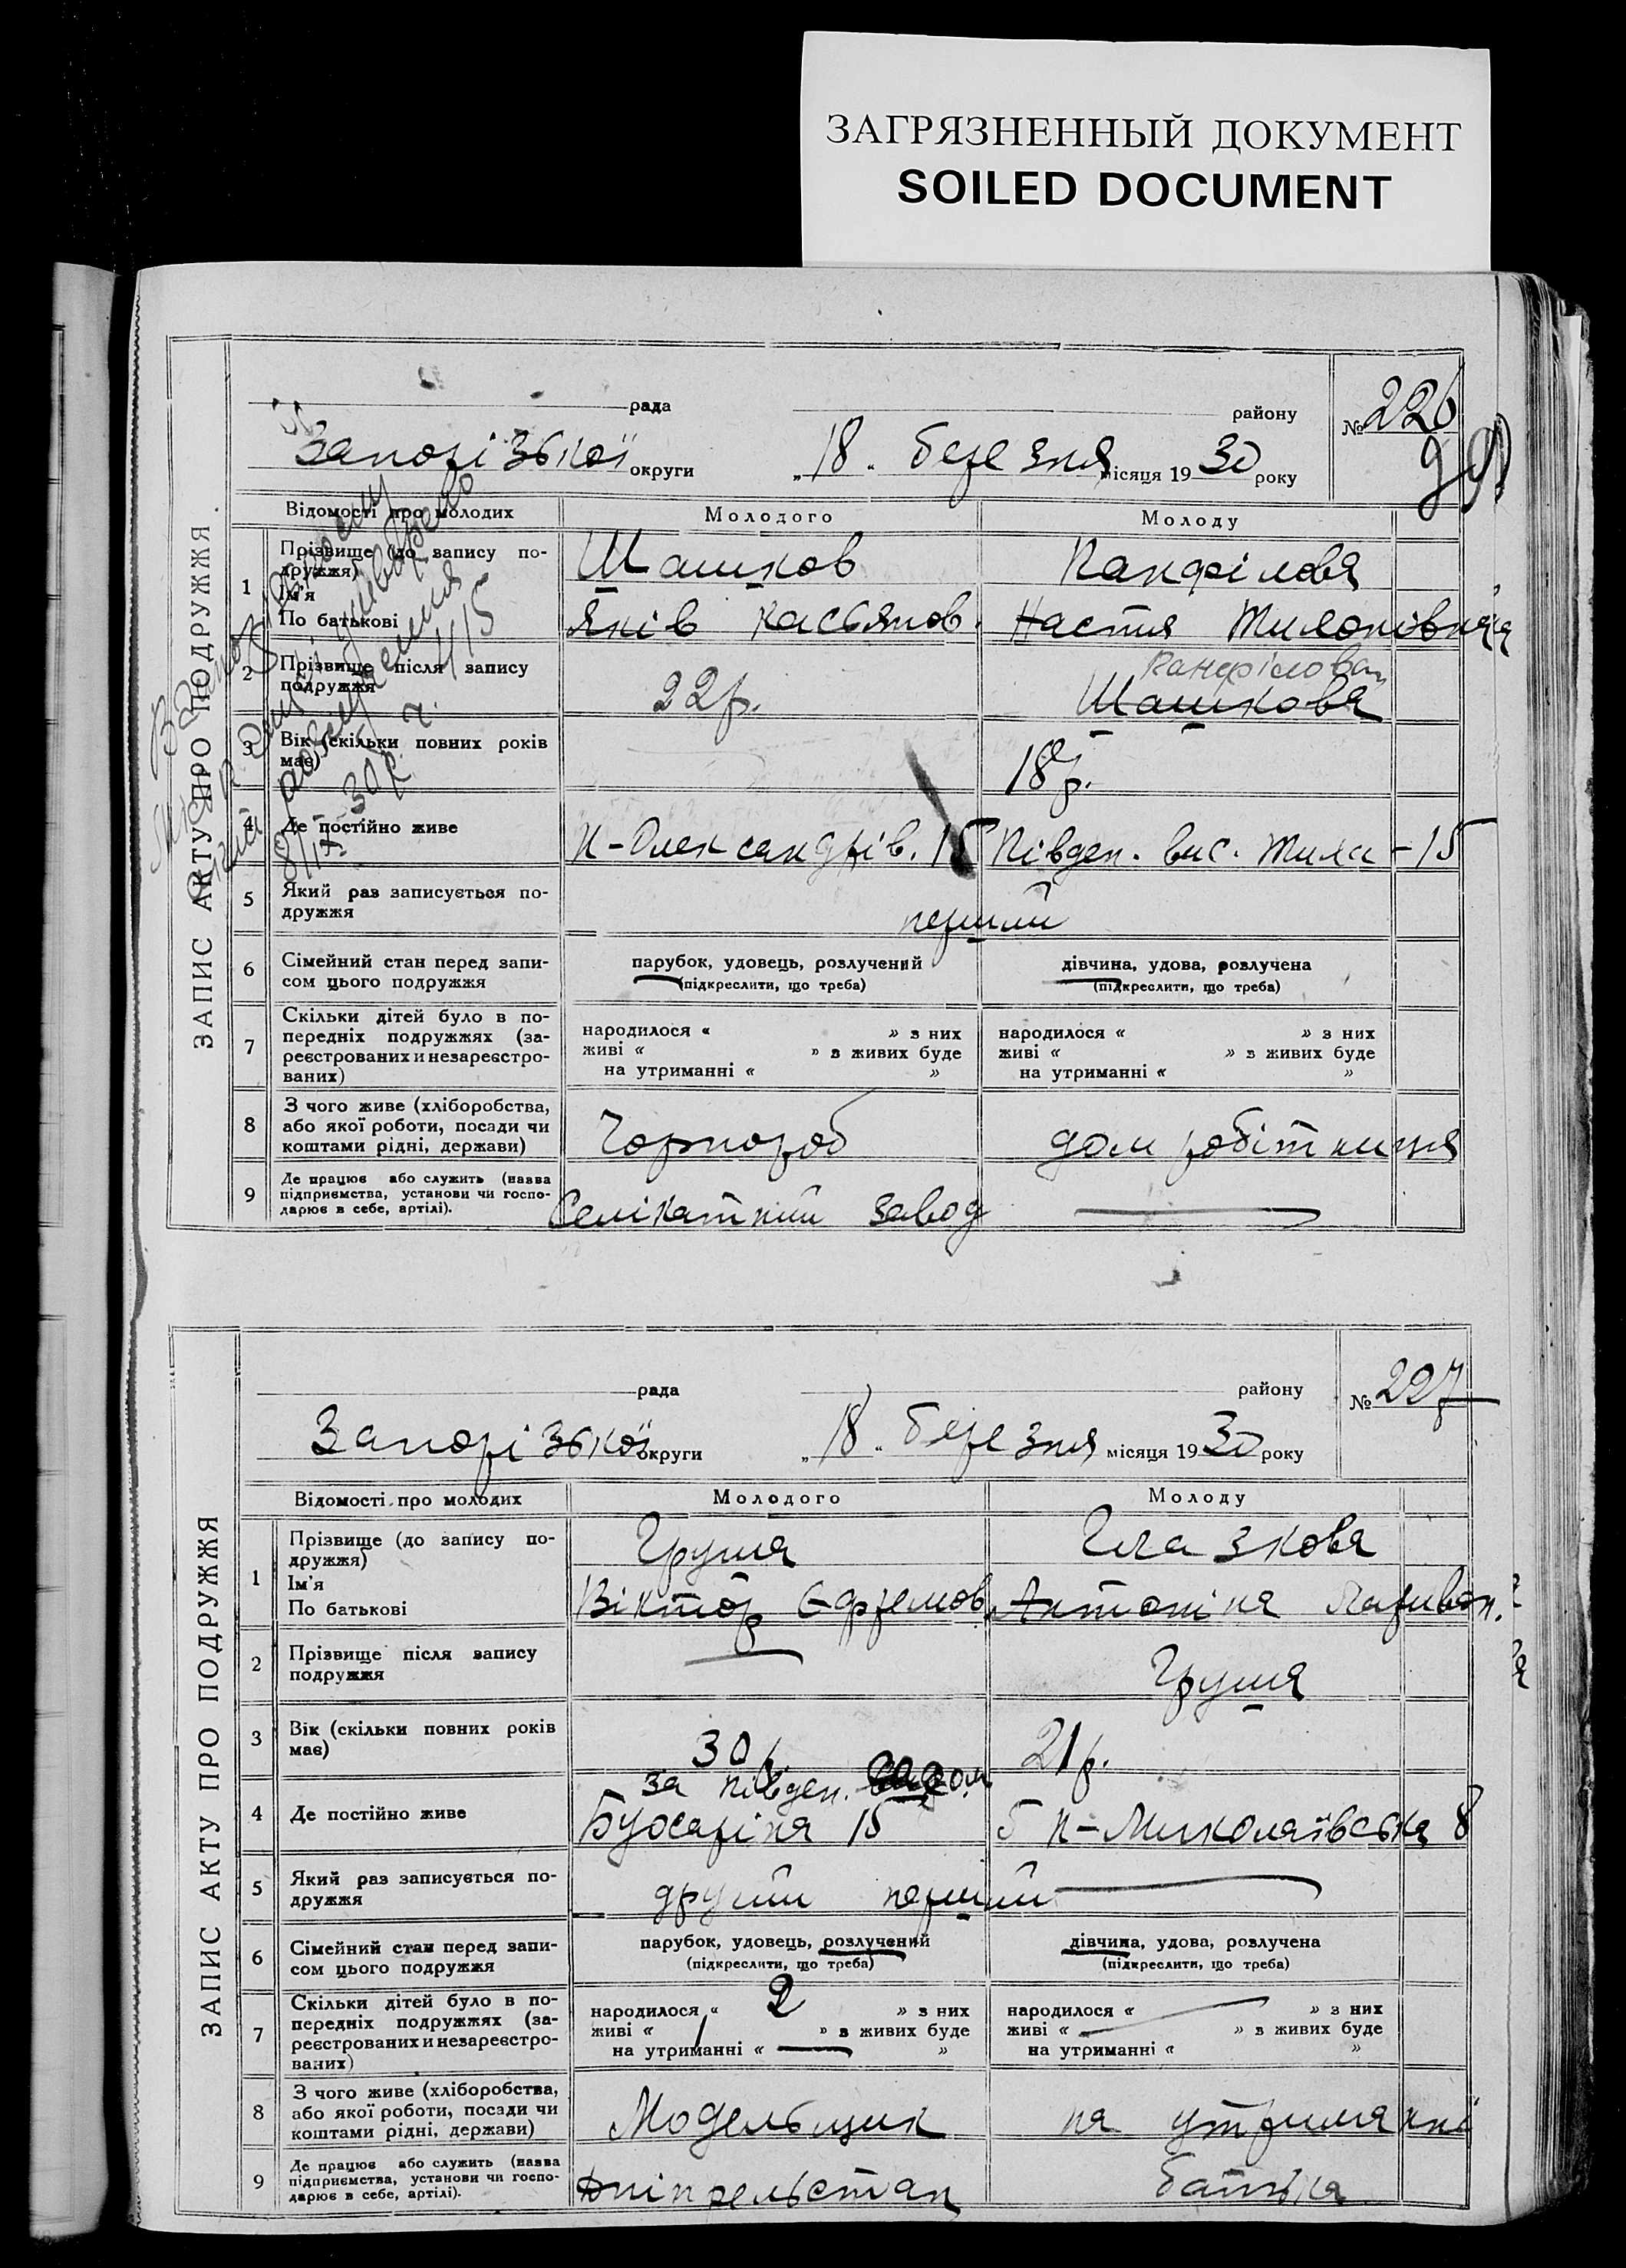 ЗАГРЯЗНЕННЫЙ ДОКУМЕНТ
SOILED DOCUMENT
ЗАПИС АКТУ ПРО ПОДРУЖЖЯ
рада району № 226
Запорізької округи „18“ березня місяця 1930 року
Відомості про молодих Молодого Молоду
1 Прізвище (до запису по-
дружжя)
Ім'я
По батькові
Шашков Панфілова
Яків Касьянов. Настя
2 Прізвище після запису
подружжя
22р. Панфілова
Шашкова
3 Вік (скільки повних років
має)
18р.
4 Де постійно живе
П-Олександрів. 15 Півден. вис. -15
5 Який раз записується по-
дружжя
перший
6 Сімейний стан перед запи-
сом цього подружжя
парубок, удовець, розлучений
(підкреслити, що треба)
дівчина, удова, розлучена
(підкреслити, що треба)
7 Скільки дітей було в по-
передніх подружжях (за-
реєстрованих и незареєстро-
ваних)
народилося « » з них
живі « » з живих буде
на утриманні « »
народилося « » з них
живі « » з живих буде
на утриманні « »
8 З чого живе (хліборобства,
або якої роботи, посади чи
коштами рідні, держави)
Чорнороб дом робітниця
9 Де працює або служить (назва
підприємства, установи чи госпо-
дарює в себе, артілі).
Селікатний завод
8/IX-30р. ч. 415
ЗАПИС АКТУ ПРО ПОДРУЖЖЯ
рада району № 227
Запорізької округи „18“ березня місяця 1930 року
Відомості про молодих Молодого Молоду
1 Прізвище (до запису по-
дружжя)
Ім'я
По батькові
Груша Глазкова
Віктор Єфремов. Антоніна
2 Прізвище після запису
подружжя
Груша
3 Вік (скільки повних років
має)
30р. 21р.
4 Де постійно живе
за Півден.
15 П-Миколаївська 8
5 Який раз записується по-
дружжя
другий перший
6 Сімейний стан перед запи-
сом цього подружжя
парубок, удовець, розлучений
(підкреслити, що треба)
дівчина, удова, розлучена
(підкреслити, що треба)
7 Скільки дітей було в по-
передніх подружжях (за-
реєстрованих и незареєстро-
ваних)
народилося « 2 » з них
живі « 1 » з живих буде
на утриманні « — »
народилося « — » з них
живі « — » з живих буде
на утриманні « »
8 З чого живе (хліборобства,
або якої роботи, посади чи
коштами рідні, держави)
Модельщик на утриманні
9 Де працює або служить (назва
підприємства, установи чи госпо-
дарює в себе, артілі).
Дніпрельстан батька